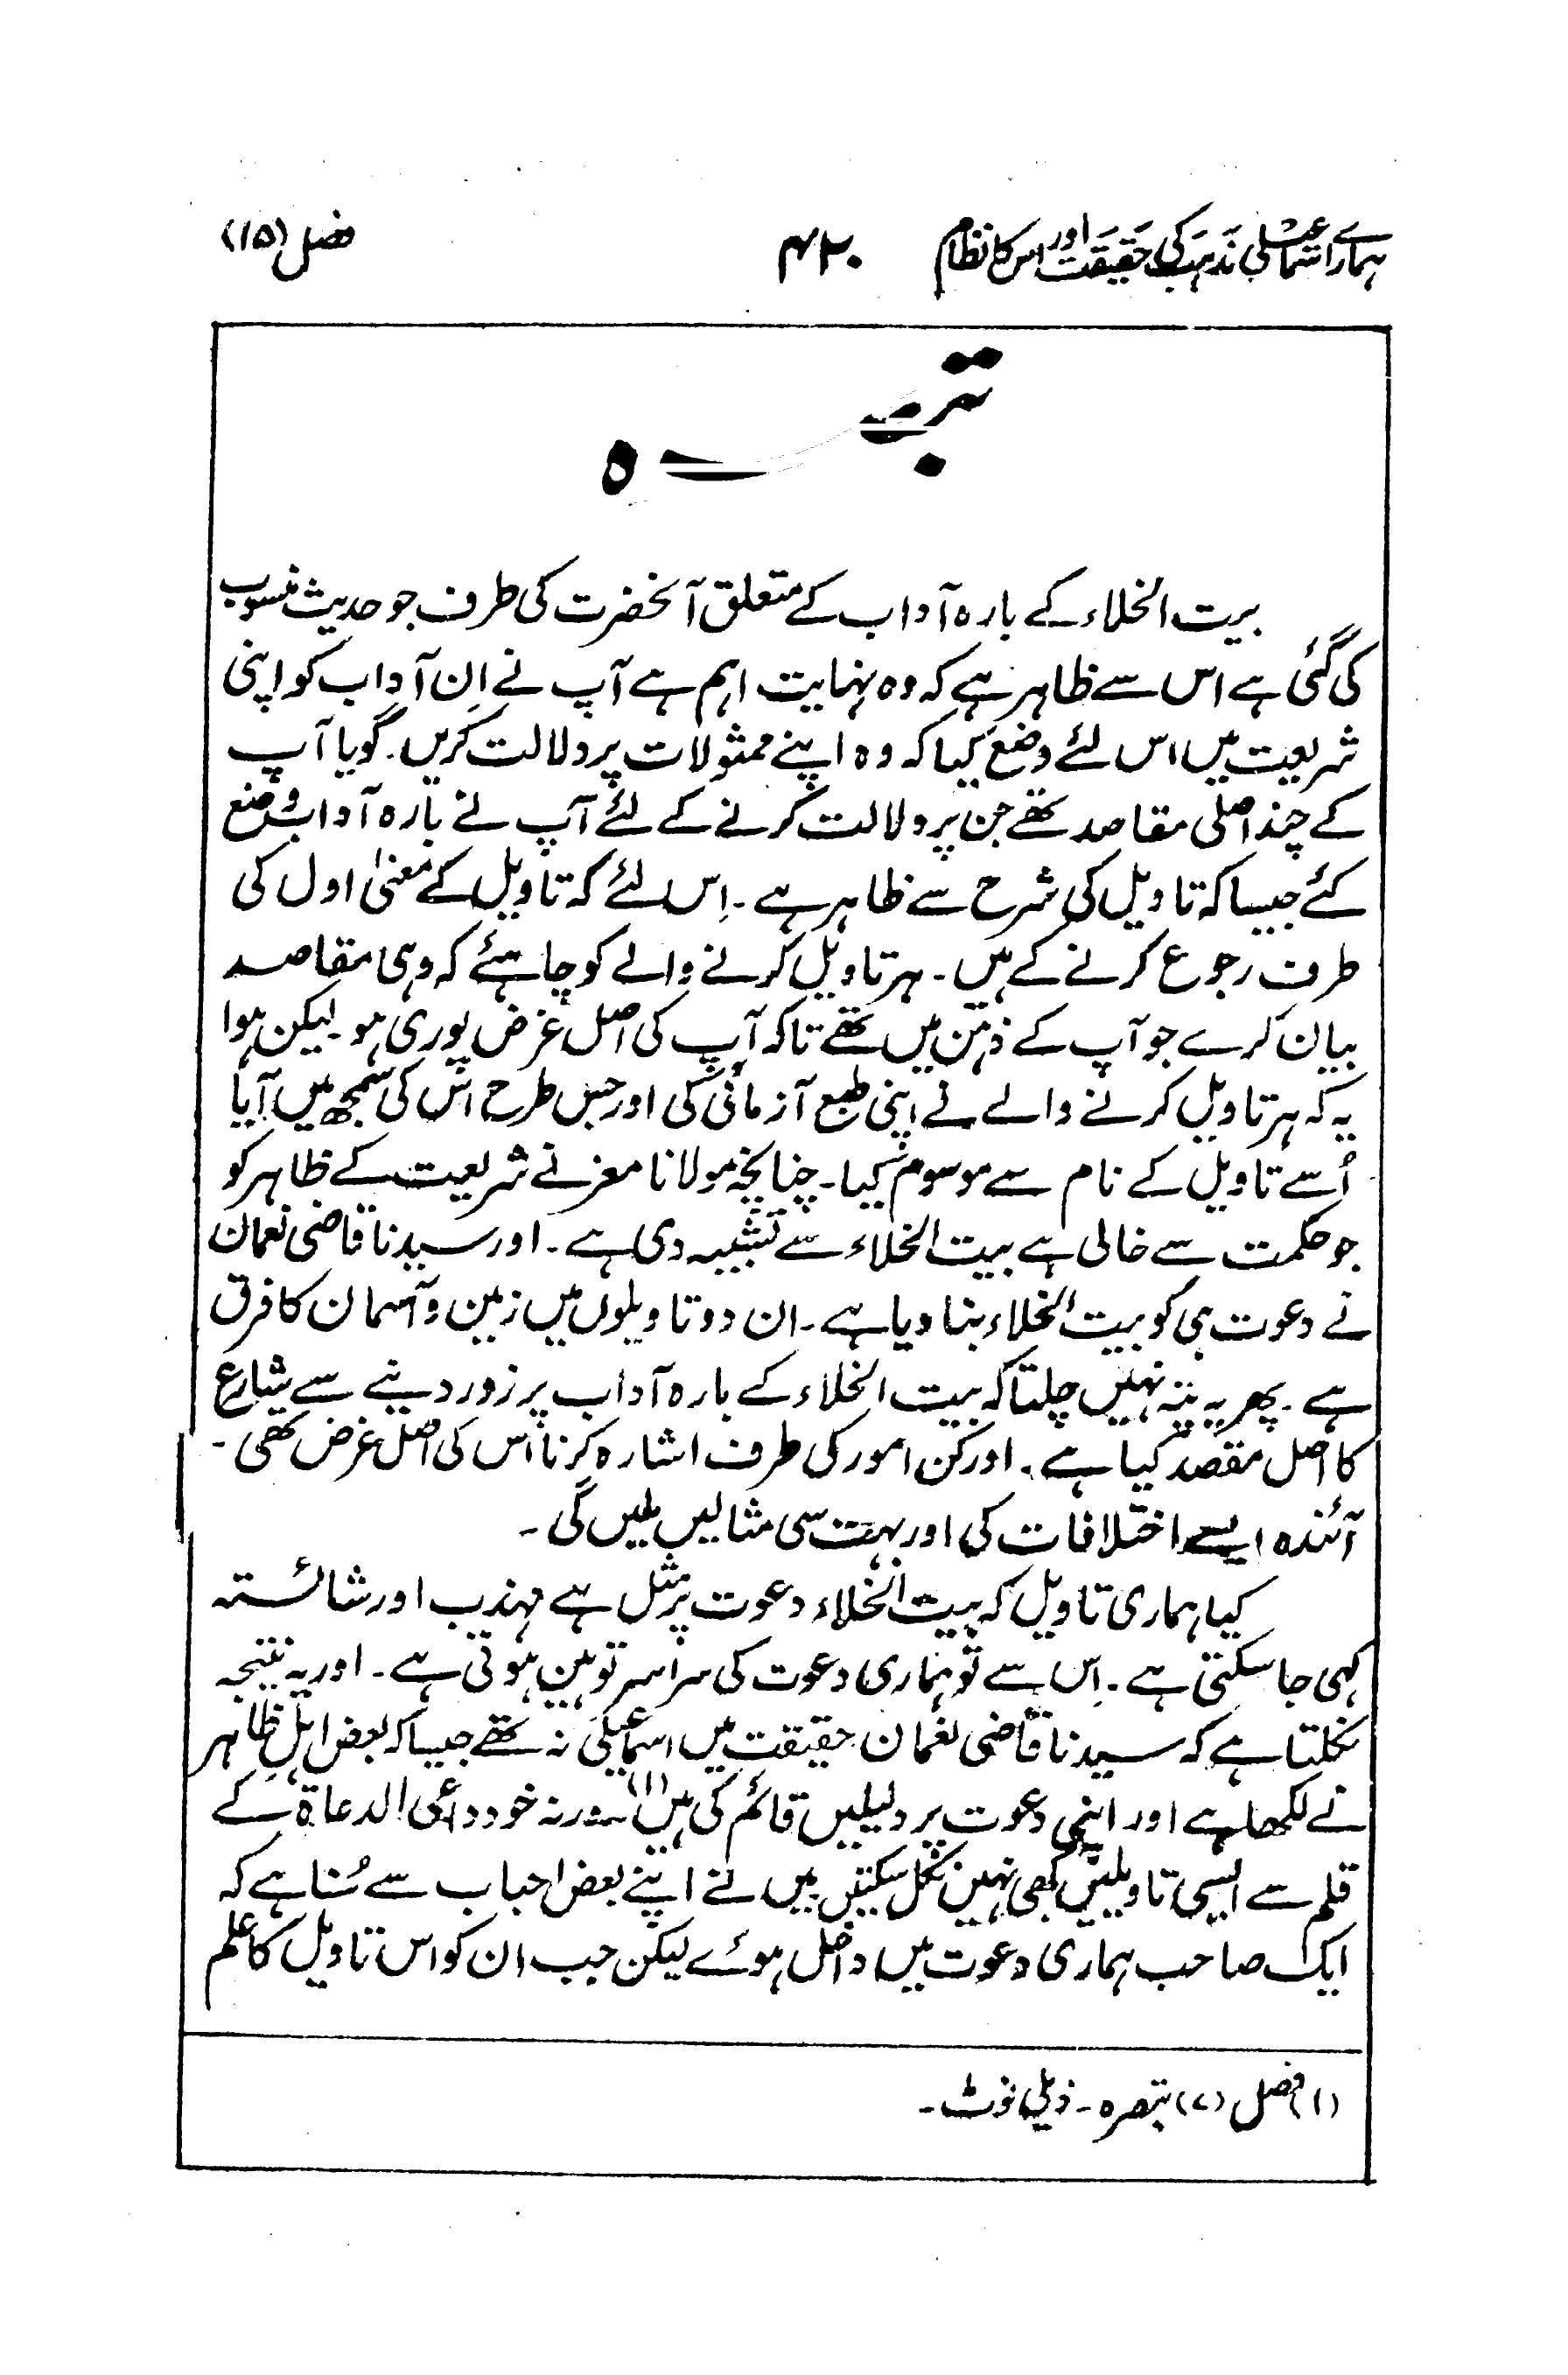 ہمارے اسماعیلی مذہب کی حقیقت اور اس کا نظام ۴۲۰ فصل (۱۵)
تبصرہ
بیت الخلاء کے بارہ آداب کے متعلق آنحضرت کی طرف جو حدیث منسوب
کی گئی ہے اس سے ظاہر ہے کہ وہ نہایت اہم ہے آپ نے اِن آداب کو اپنی
شریعت میں اس لئے وضع کیا کہ وہ اپنے ممثولات پر دلالت کریں۔ گویا آپ
کے چند اصلی مقاصد تھے جن پر دلالت کرنے کے لئے آپ نے بارہ آداب وضع
کئے جیسا کہ تاویل کی شرح سے ظاہر ہے۔ اِس لئے کہ تاویل کے معنیٰ اول کی
طرف رجوع کرنے کے ہیں۔ ہر تاویل کرنے والے کو چاہئے کہ وہی مقاصد
بیان کرے جو آپ کے ذہن میں تھے تاکہ آپ کی اصل غرض پوری ہو۔ لیکن ہوا
یہ کہ ہر تاویل کرنے والے نے اپنی طبع آزمائی کی اور جس طرح اس کی سمجھ میں آیا
اُسے تاویل کے نام سے موسوم کیا۔ چنانچہ مولانا معز نے شریعت کے ظاہر کو
جو حکمت سے خالی ہے بیت الخلاء سے تشبیہ دی ہے۔ اور سیدنا قاضی نعمان
نے دعوت ہی کو بیت الخلاء بنا دیا ہے۔ ان دو تاویلوں میں زمین و آسمان کا فرق
ہے۔ پھر یہ پتہ نہیں چلتا کہ بیت الخلاء کے بارہ آداب پر زور دینے سے شارع
کا اصل مقصد کیا ہے۔ اور کن امور کی طرف اشارہ کرنا اس کی اصل غرض تھی۔
آئندہ ایسے اختلافات کی اور بہت سی مثالیں ملیں گی۔
کیا ہماری تاویل کہ بیت الخلاء دعوت پر مثل ہے مہذب اور شائستہ
کہی جا سکتی ہے۔ اِس سے تو ہماری دعوت کی سراسر توہین ہوتی ہے۔ اور یہ نتیجہ
نکلتا ہے کہ سیدنا قاضی نعمان حقیقت میں اسماعیلی نہ تھے جیسا کہ بعض اہلِ ظاہر
نے لکھا ہے اور اپنی دعوت پر دلیلیں قائم کی ہیں (۱)۔ ورنہ خود داعی الدعاۃ کے
قلم سے ایسی تاویلیں کبھی نہیں نکل سکتیں۔ میں نے اپنے بعض احباب سے سُنا ہے کہ
ایک صاحب ہماری دعوت میں داخل ہوئے لیکن جب ان کو اس تاویل کا علم
(۱) فصل (۷) تبصرہ۔ ذیلی نوٹ۔